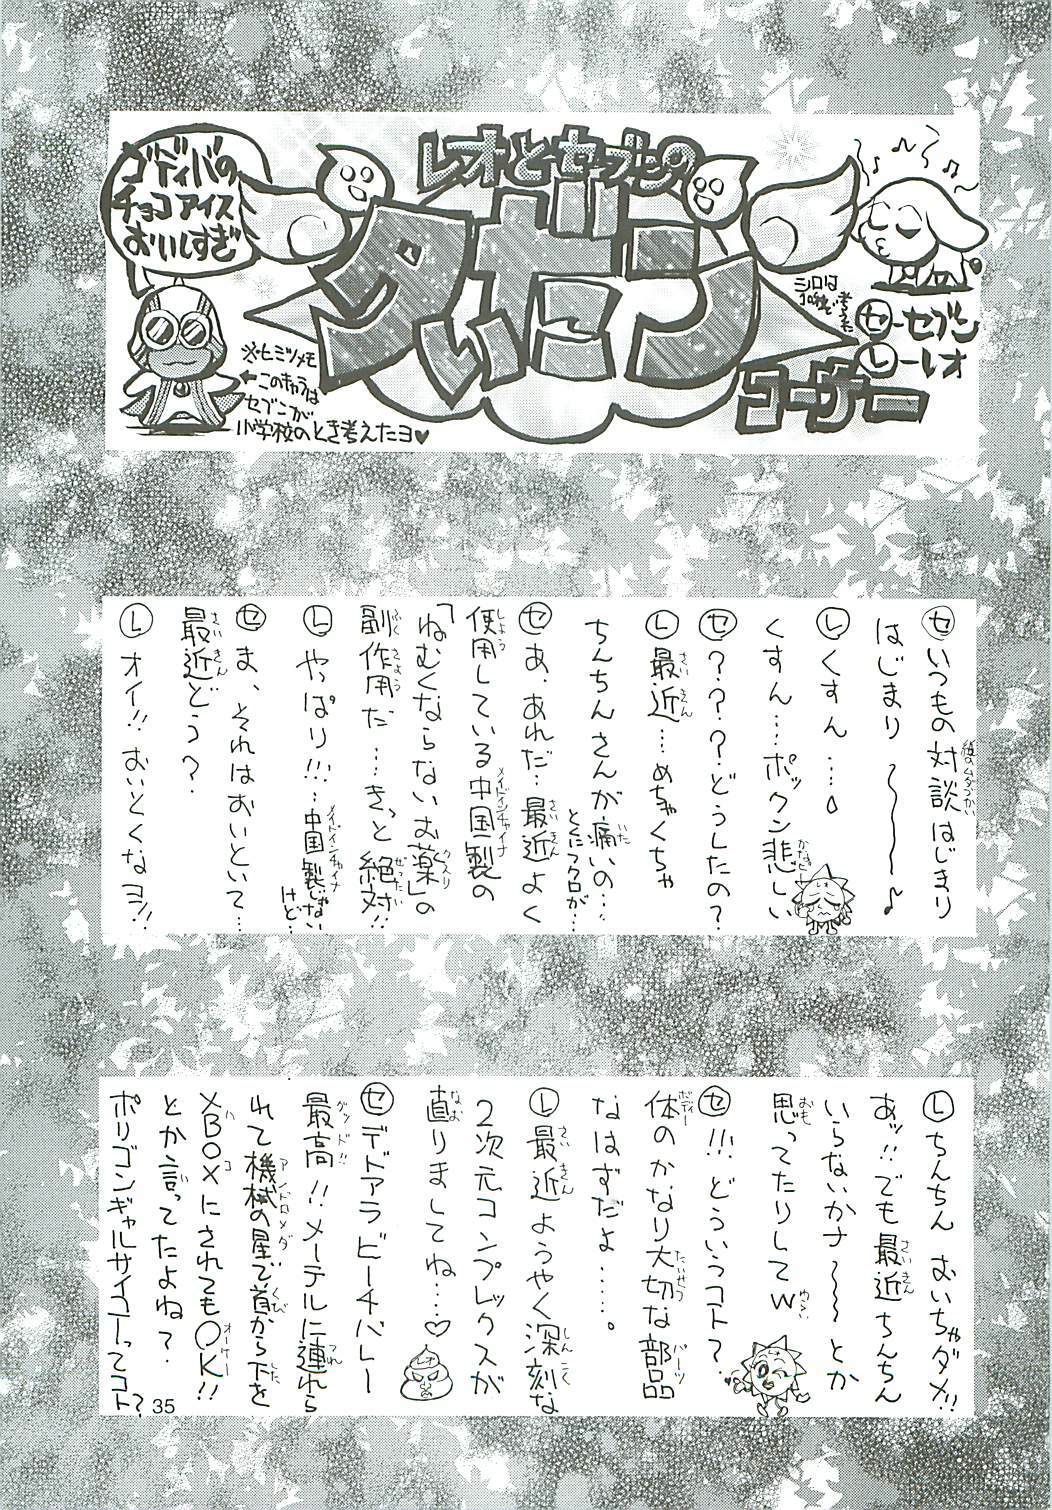 レオとセブンの
対だーン
コーナー
ゴディバの
チョコアイス
おいしすぎ
※ヒミツメモ
←このきゃらは
セブンが
小学校のとき考えたヨ♥
シロは
考えた
セ-セブン
レ-レオ
セ いつもの対談はじまり
はじまり〜〜〜♪
レ くすん…。
くすん…ポックン悲しい
セ ???どうしたの?
レ 最近…めちゃくちゃ
ちんちんさんが痛いの…。
とくにフクロが…
セ あ、あれだ…最近よく
使用している中国製の
「ねむくならないお薬」の
副作用だ…きっと絶対!!
レ やっぱり!!!…中国製じゃない
けど…
セ ま、それはおいといて…
最近どう?
レ オイ!!おいとくなヨ!!
レ ちんちん おいちゃダメ!!
あッ!!でも最近ちんちん
いらないかナ〜〜とか
思ってたりしてw
セ !!!どういうコト?
体のかなり大切な部品
なはずだよ……。
レ 最近ようやく深刻な
2次元コンプレックスが
直りましてね…♡
セ デドアラビーチバレー
最高!!メーテルに連れら
れて機械の星で首から下を
XBOXにされてもOK!!
とか言ってたよね?
ポリゴンギャルサイコーってコト?
レオ
35